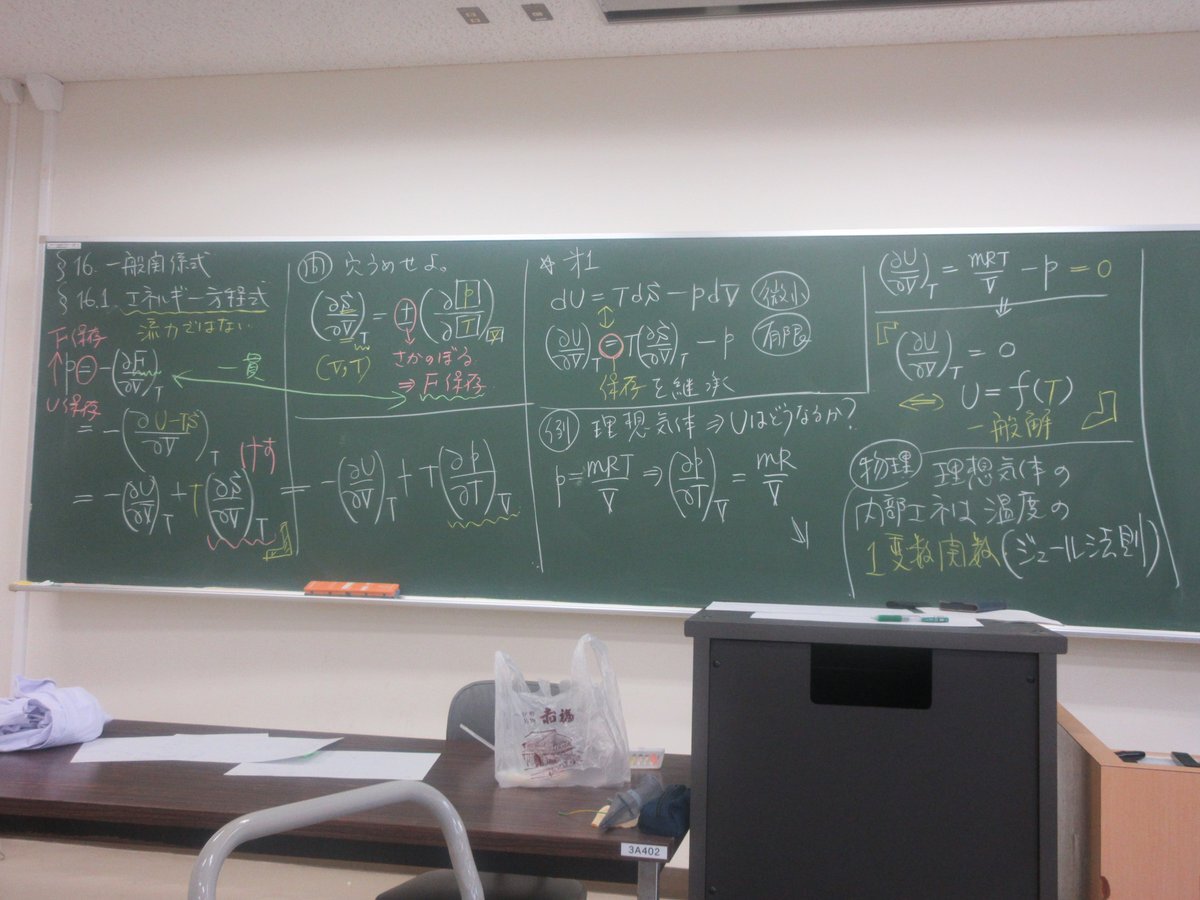 §16. 一般関係式
§16.1. エネルギー方程式
流力ではない
F保存
p = -(∂F/∂V)_T
U保存
一貫
= -(∂ U-TS/∂V)_T
けす
= -(∂U/∂V)_T + T(∂S/∂V)_T
問 穴うめせよ。
(∂S/∂V)_T = + (∂p/∂T)_V
(V,T)
さかのぼる
⇒ F保存
= -(∂U/∂V)_T + T(∂p/∂T)_V
☆ 才1
dU = TdS - pdV 微小
(∂U/∂V)_T = T(∂S/∂V)_T - p 有限
保存を継承
例 理想気体 ⇒ Uはどうなるか?
p = mRT/V ⇒ (∂p/∂T)_V = mR/V
(∂U/∂V)_T = mRT/V - p = 0
(∂U/∂V)_T = 0
⇔ U = f(T)
一般解
物理 理想気体の
内部エネは温度の
1変数関数(ジュール法則)
赤福
3A402